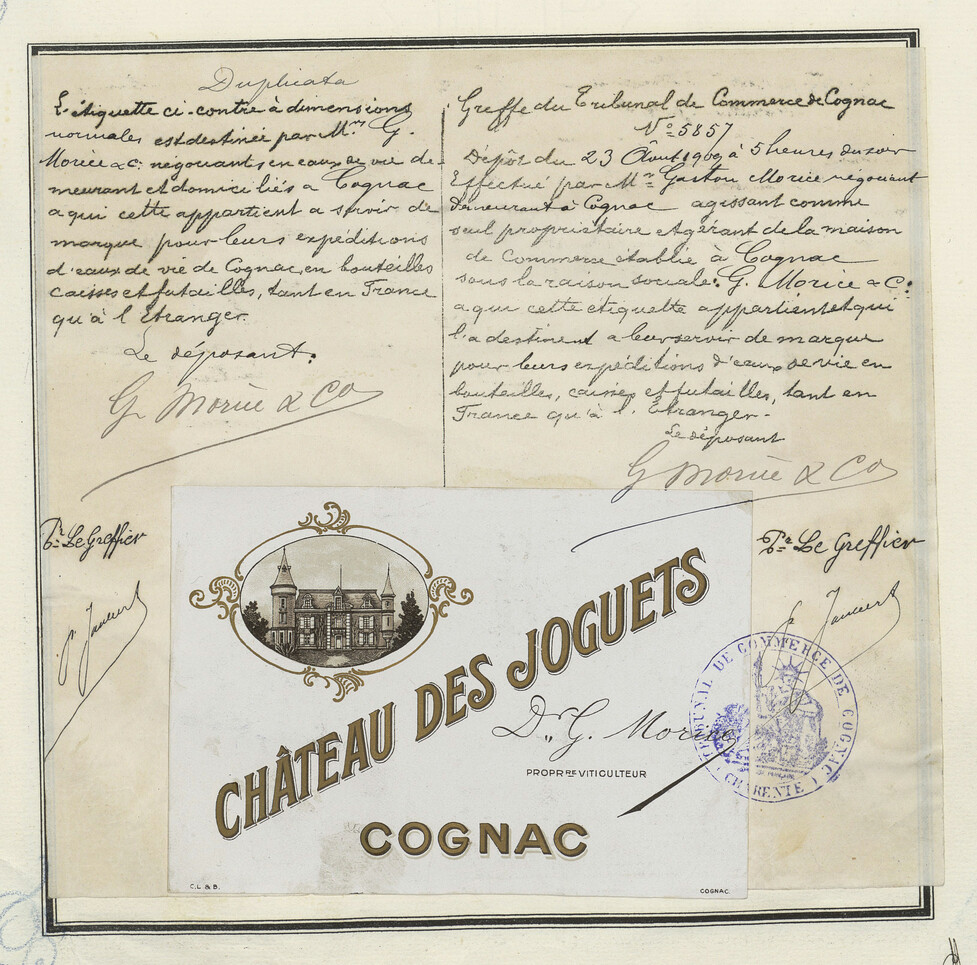 Duplicata
L'étiquette ci-contre à dimensions
normales est destinée par Mrs G.
Morice & C: négociants en eaux de vie de-
meurant et domiciliés a Cognac
a qui cette appartient a servir de
marque pour leurs expéditions
d'eaux de vie de Cognac, en bouteilles
caisses et futailles, tant en France
qu'à l'Étranger.
Le déposant.
G. Morice & Co
Pr Le Greffier
Greffe du Tribunal de Commerce de Cognac
No 5857
Dépôt du 23 Août 1909 à 5 heures du soir
Effectué par Mr Gaston Morice négociant
demeurant à Cognac agissant comme
seul propriétaire et gérant de la maison
de Commerce établie à Cognac
sous la raison sociale: G. Morice & C:
a qui cette etiquette appartient et qui
l'a destinent a leur servir de marque
pour leurs expéditions d'eaux de vie en
bouteilles, caisses et futailles, tant en
France qu'à l'Étranger.
Le déposant
G Morice & Co
Pr Le Greffier
CHÂTEAU DES JOGUETS
Dr G. Morice
PROPRRE VITICULTEUR
COGNAC
C.L & B.
COGNAC
TRIBUNAL DE COMMERCE DE COGNAC
(CHARENTE)